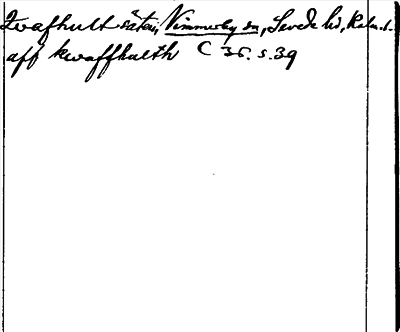 Kvafhult säteri, Vimmerby sn, Sevede hd, Kalm. l.
aff kwaffhulth C 35. s. 39